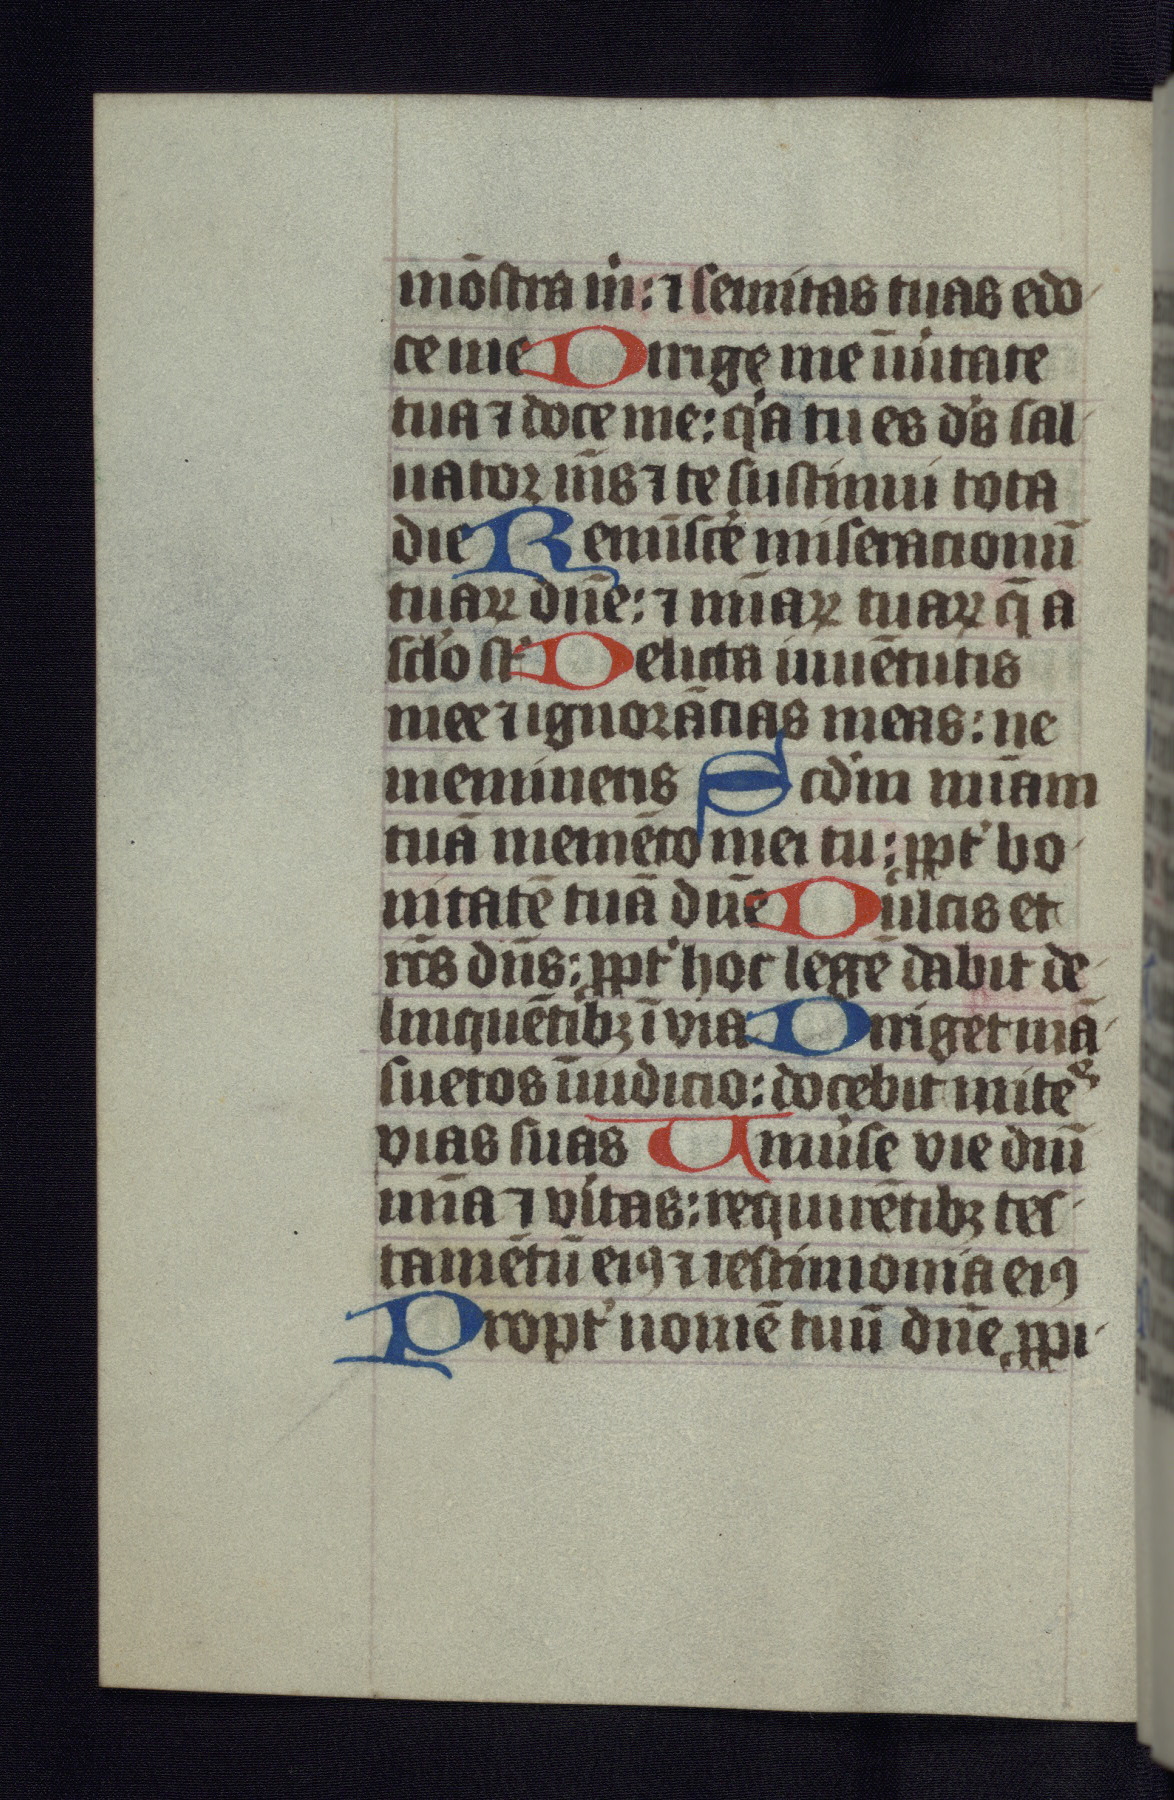 mōstra m̍: ⁊ semitas tuas edo
ce me Dirige me ī u̍itate
tua ⁊ doce me: q̍a tu es d̍s sal
uator m̄s ⁊ te sustinui tota
die Remīsce̍ miseracionū
tuaꝝ dn̄e: ⁊ mīaꝝ tuaꝝ q̄ a
sclo̍ st̍ Delicta iuuētutis
mee ⁊ ignorācias meas: ne
memineris Scd̍m mīam
tuā memēto mei tu: ꝓpt̍ bo
nitatē tuā dn̄e Dulcis et
rc̄s dn̄s: ꝓpt̍ hoc legē dabit de
linquētibꝫ ī via Diriget mā
suetos ī iudicio: docebit mites
vias suas Uniu̍se vie dn̄i
mīa ⁊ v̍itas: requirētibꝫ tes
tamētū eiꝰ ⁊ testimonia eiꝰ
Propt̍ nomē tuū dn̄e ꝓpi